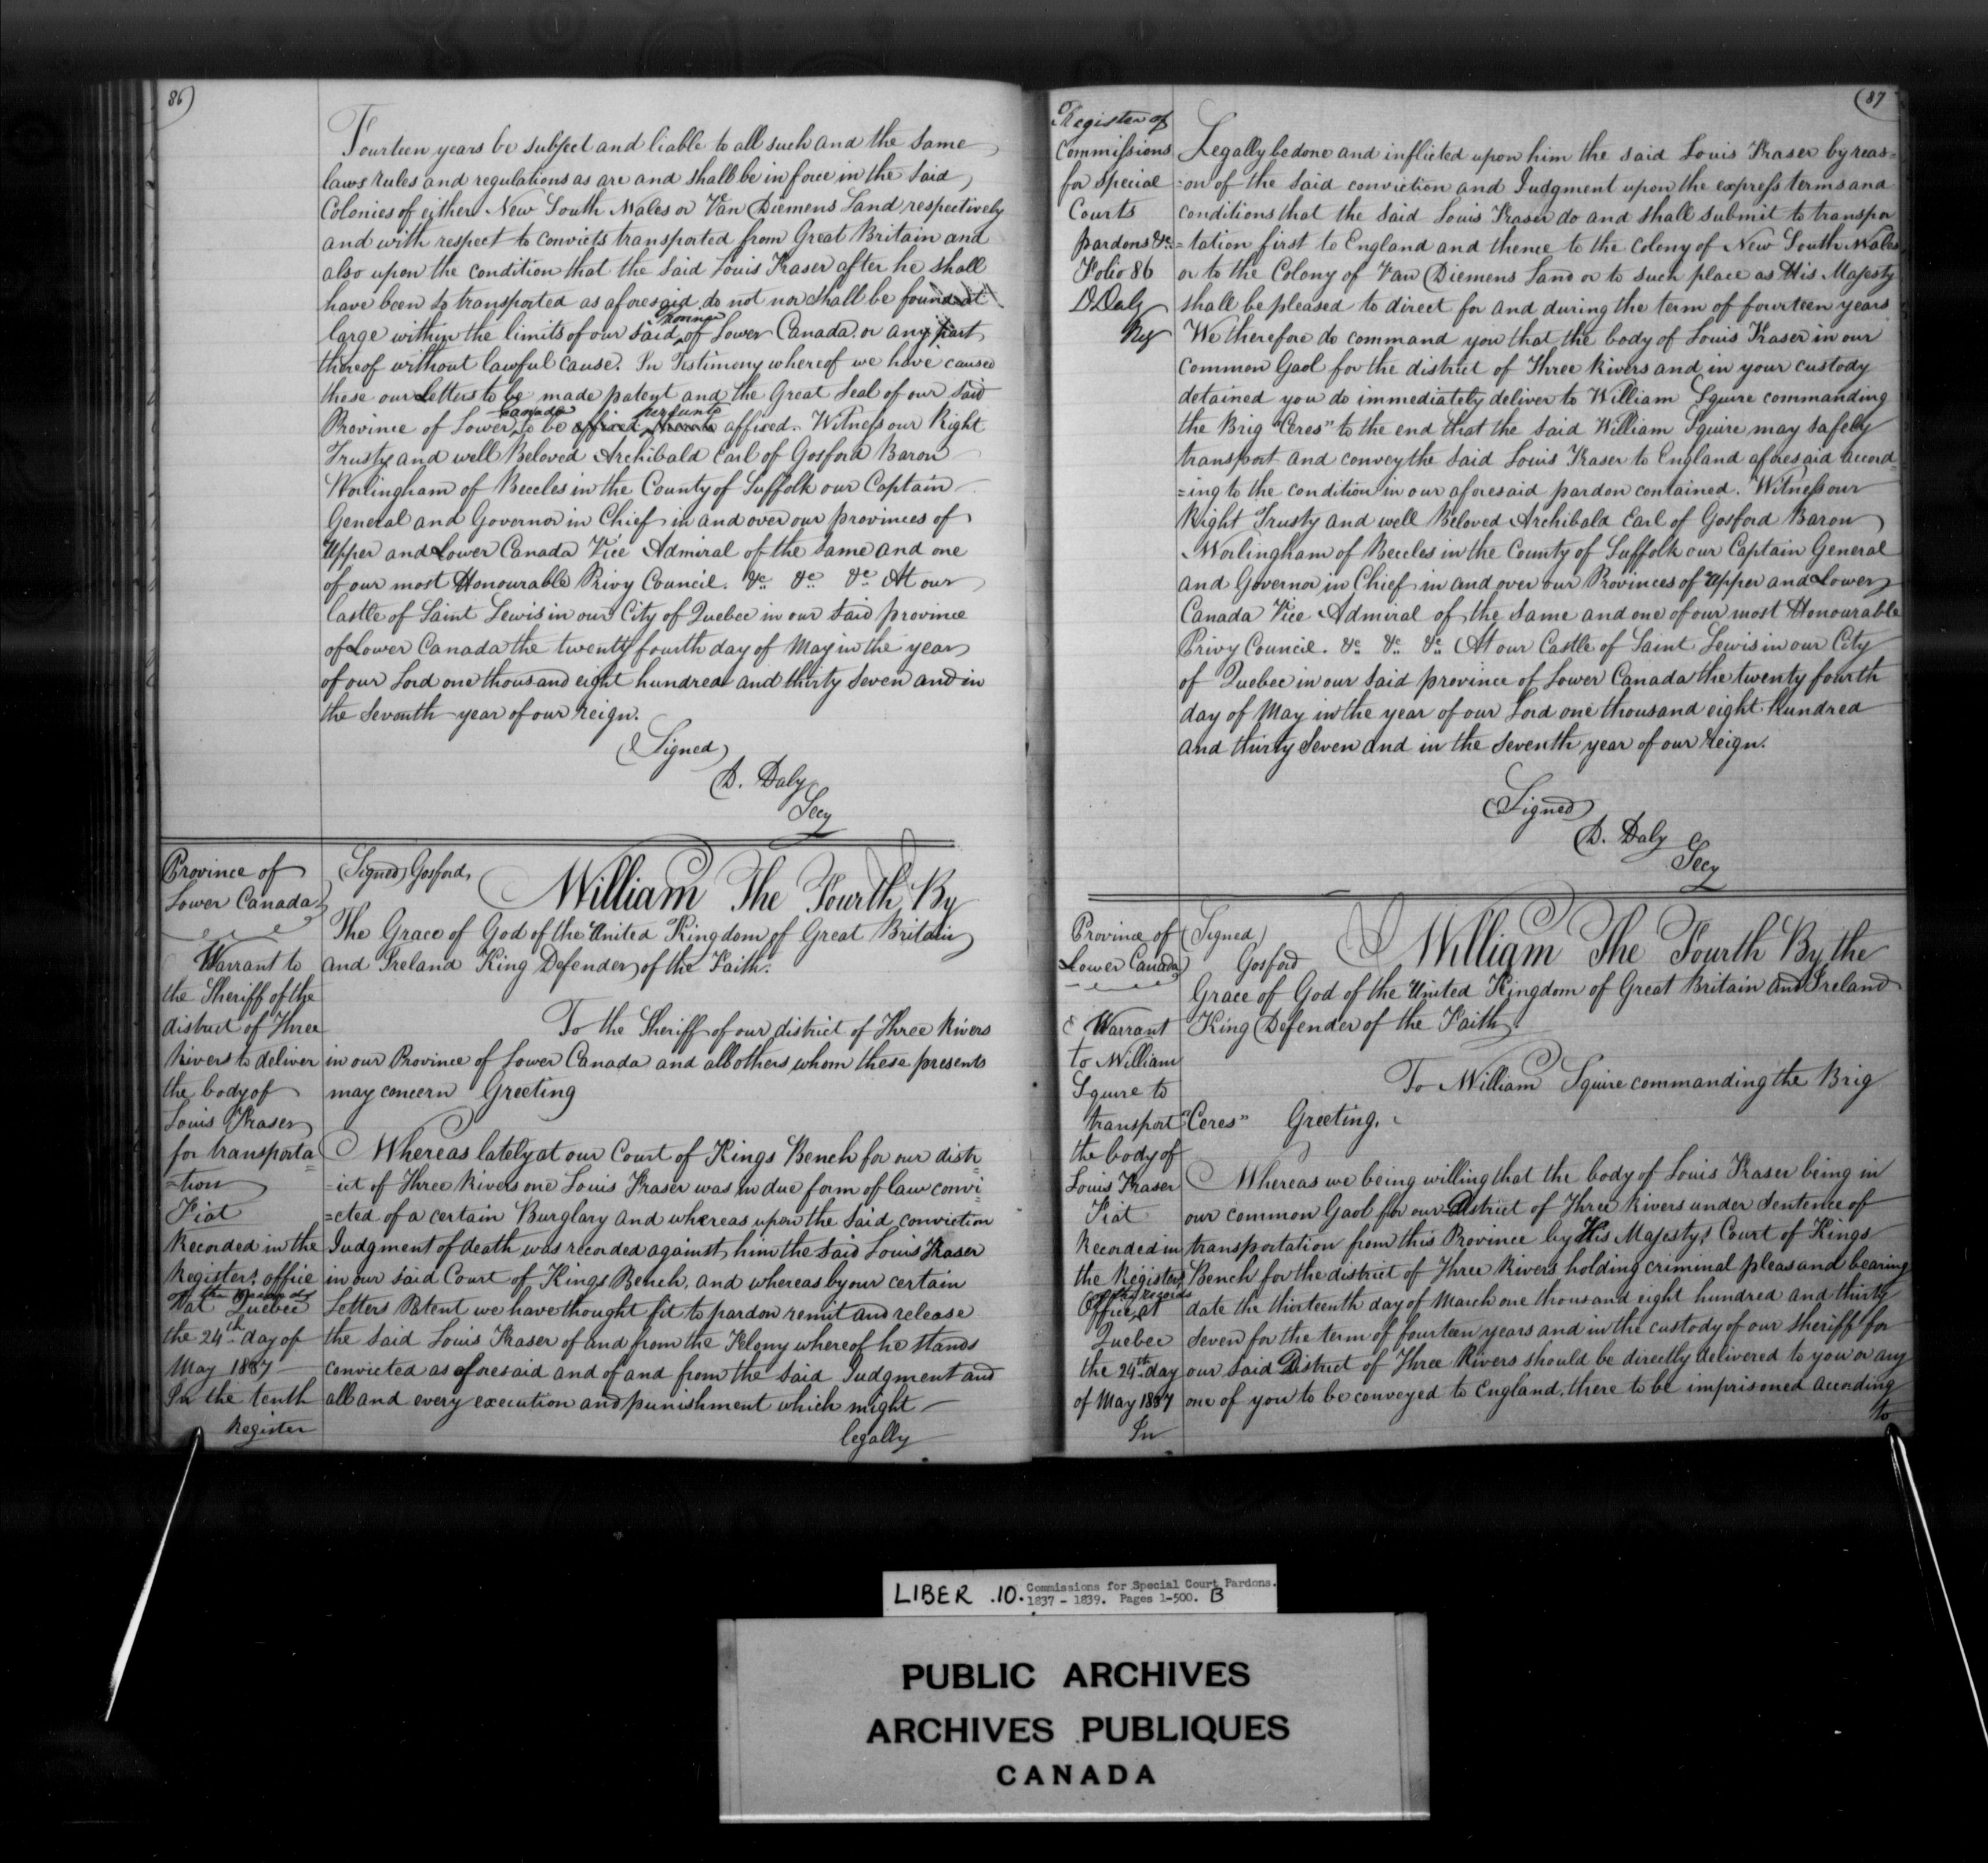 86)
Fourteen years be subject and liable to all such and the same
laws rules and regulations as are and shall be in force in the said
Colonies of either New South Wales or Van Diemens Land respectively
and with respect to convicts transported from Great Britain and
also upon the condition that the said Louis Fraser after he shall
have been so transported as aforesaid do not nor shall be found at
large within the limits of our said province of Lower Canada or any part
thereof without lawful cause. In Testimony whereof we have caused
these our Letters to be made patent and the Great Seal of our said
Province of Lower Canada to be affixed hereunto affixed. Witness our Right
Trusty and well Beloved Archibald Earl of Gosford Baron
Worlingham of Beccles in the County of Suffolk our Captain
General and Governor in Chief in and over our provinces of
Upper and Lower Canada Vice Admiral of the same and one
of our most Honourable Privy Council. &c &c &c At our
Castle of Saint Lewis in our City of Quebec in our said province
of Lower Canada the twenty fourth day of May in the year
of our Lord one thousand eight hundred and thirty seven and in
the seventh year of our reign.
(Signed)
D. Daly
Secy
Province of
Lower Canada
Warrant to
the Sheriff of the
district of Three
Rivers to deliver
the body of
Louis Fraser
for transporta
=tion
Fiat
Recorded in the
Registers office
of the Records
at Quebec
the 24th day of
May 1837
In the tenth
Register
(Signed) Gosford,
William The Fourth By
The Grace of God of the United Kingdom of Great Britain
and Ireland King Defender of the Faith.
To the Sheriff of our district of Three Rivers
in our Province of Lower Canada and all others whom these presents
may concern Greeting
Whereas lately at our Court of Kings Bench for our distr
=ict of Three Rivers one Louis Fraser was in due form of law convi
=cted of a certain Burglary and whereas upon the said conviction
Judgment of death was recorded against him the said Louis Fraser
in our said Court of Kings Bench, and whereas by our certain
Letters Patent we have thought fit to pardon remit and release
the said Louis Fraser of and from the Felony whereof he stands
convicted as aforesaid and of and from the said Judgment and
all and every execution and punishment which might
legally
(87
Register of
Commissions
for Special
Courts
pardons &c
Folio 86
D Daly
Reg
Legally be done and inflicted upon him the said Louis Fraser by reas=
=on of the said conviction and Judgment upon the express terms and
conditions that the said Louis Fraser do and shall submit to transpor
=tation first to England and thence to the Colony of New South Wales
or to the Colony of Van Diemens Land or to such place as His Majesty
shall be pleased to direct for and during the term of fourteen years
We therefore do command you that the body of Louis Fraser in our
Common Gaol for the district of Three Rivers and in your custody
detained you do immediately deliver to William Squire commanding
the Brig "Ceres" to the end that the said William Squire may safely
transport and convey the said Louis Fraser to England aforesaid accord
=ing to the condition in our aforesaid pardon contained. Witness our
Right Trusty and well Beloved Archibald Earl of Gosford Baron
Worlingham of Beccles in the County of Suffolk our Captain General
and Governor in Chief in and over our Provinces of Upper and Lower
Canada Vice Admiral of the same and one of our most Honourable
Privy Council. &c &c &c At our Castle of Saint Lewis in our City
of Quebec in our said province of Lower Canada the twenty fourth
day of May in the year of our Lord one thousand eight hundred
and thirty seven and in the seventh year of our reign.
(Signed)
D. Daly
Secy
Province of
Lower Canada
Warrant
to William
Squire to
transport
the body of
Louis Fraser
Fiat
Recorded in
the Registers
of the records
Office at
Quebec
the 24th day
of May 1837
In
(Signed)
Gosford
William The Fourth By the
Grace of God of the United Kingdom of Great Britain and Ireland
King Defender of the Faith.
To William Squire commanding the Brig
"Ceres" Greeting.
Whereas we being willing that the body of Louis Fraser being in
our common Gaol for our District of Three Rivers under sentence of
transportation from this Province by His Majestys Court of Kings
Bench for the district of Three Rivers holding criminal pleas and bearing
date the thirteenth day of March one thousand eight hundred and thirty
seven for the term of fourteen years and in the custody of our sheriff for
our said District of Three Rivers should be directly delivered to you or any
one of you to be conveyed to England, there to be imprisoned according
to
LIBER .10. Commissions for Special Court Pardons.
1837 - 1839. Pages 1-500. B
PUBLIC ARCHIVES
ARCHIVES PUBLIQUES
CANADA